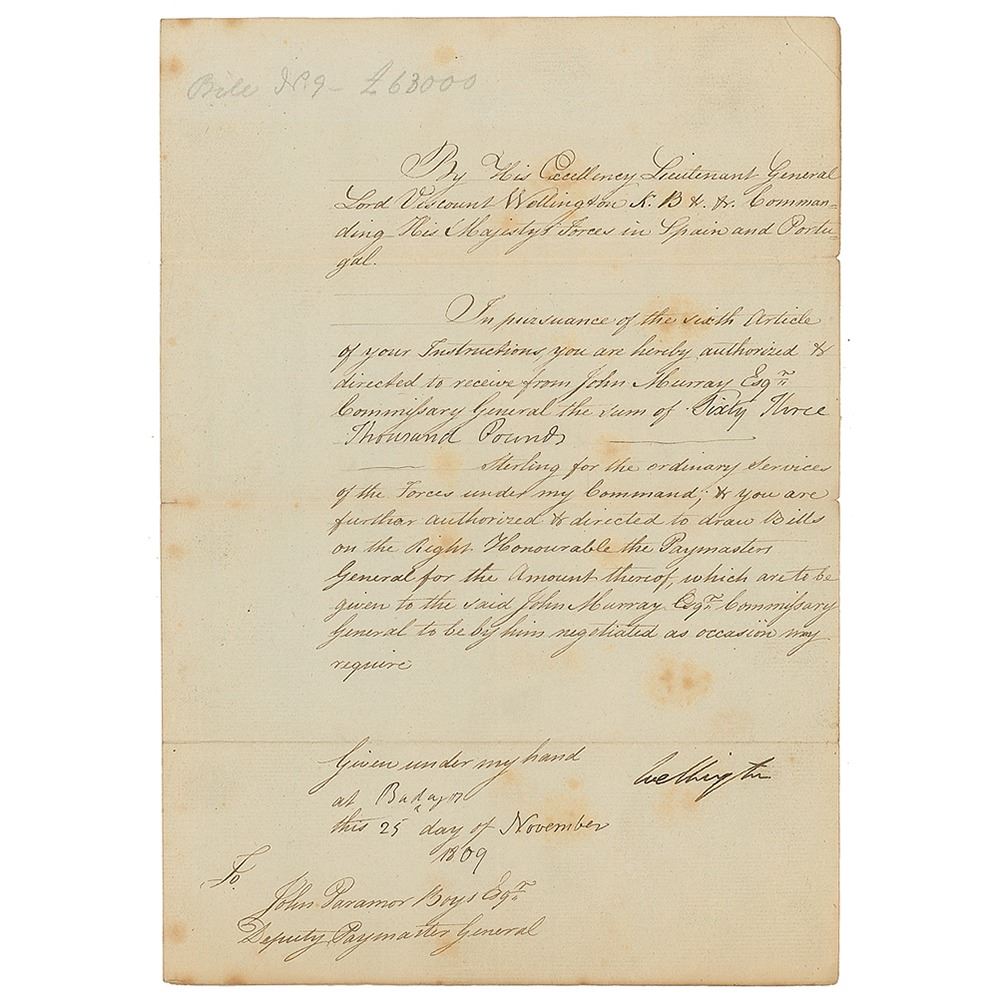 Bill No. 9 - £63000
By His Excellency Lieutenant General
Lord Viscount Wellington K. B &. &. Comman=
ding His Majesty's Forces in Spain and Portu=
gal.
In pursuance of the sixth Article
of your Instructions, you are hereby authorized &
directed to receive from John Murray Esqr.
Commissary General the sum of Sixty Three
Thousand Pounds
Sterling for the ordinary Services
of the Forces under my Command; & you are
further authorized & directed to draw Bills
on the Right Honourable the Paymasters
General for the Amount thereof, which are to be
given to the said John Murray Esqr. Commissary
General to be by him negotiated as occasion may
require
Given under my hand
Wellington
at Badajoz
this 25 day of November
1809
To
John Paramor Boys Esqr.
Deputy Paymaster General